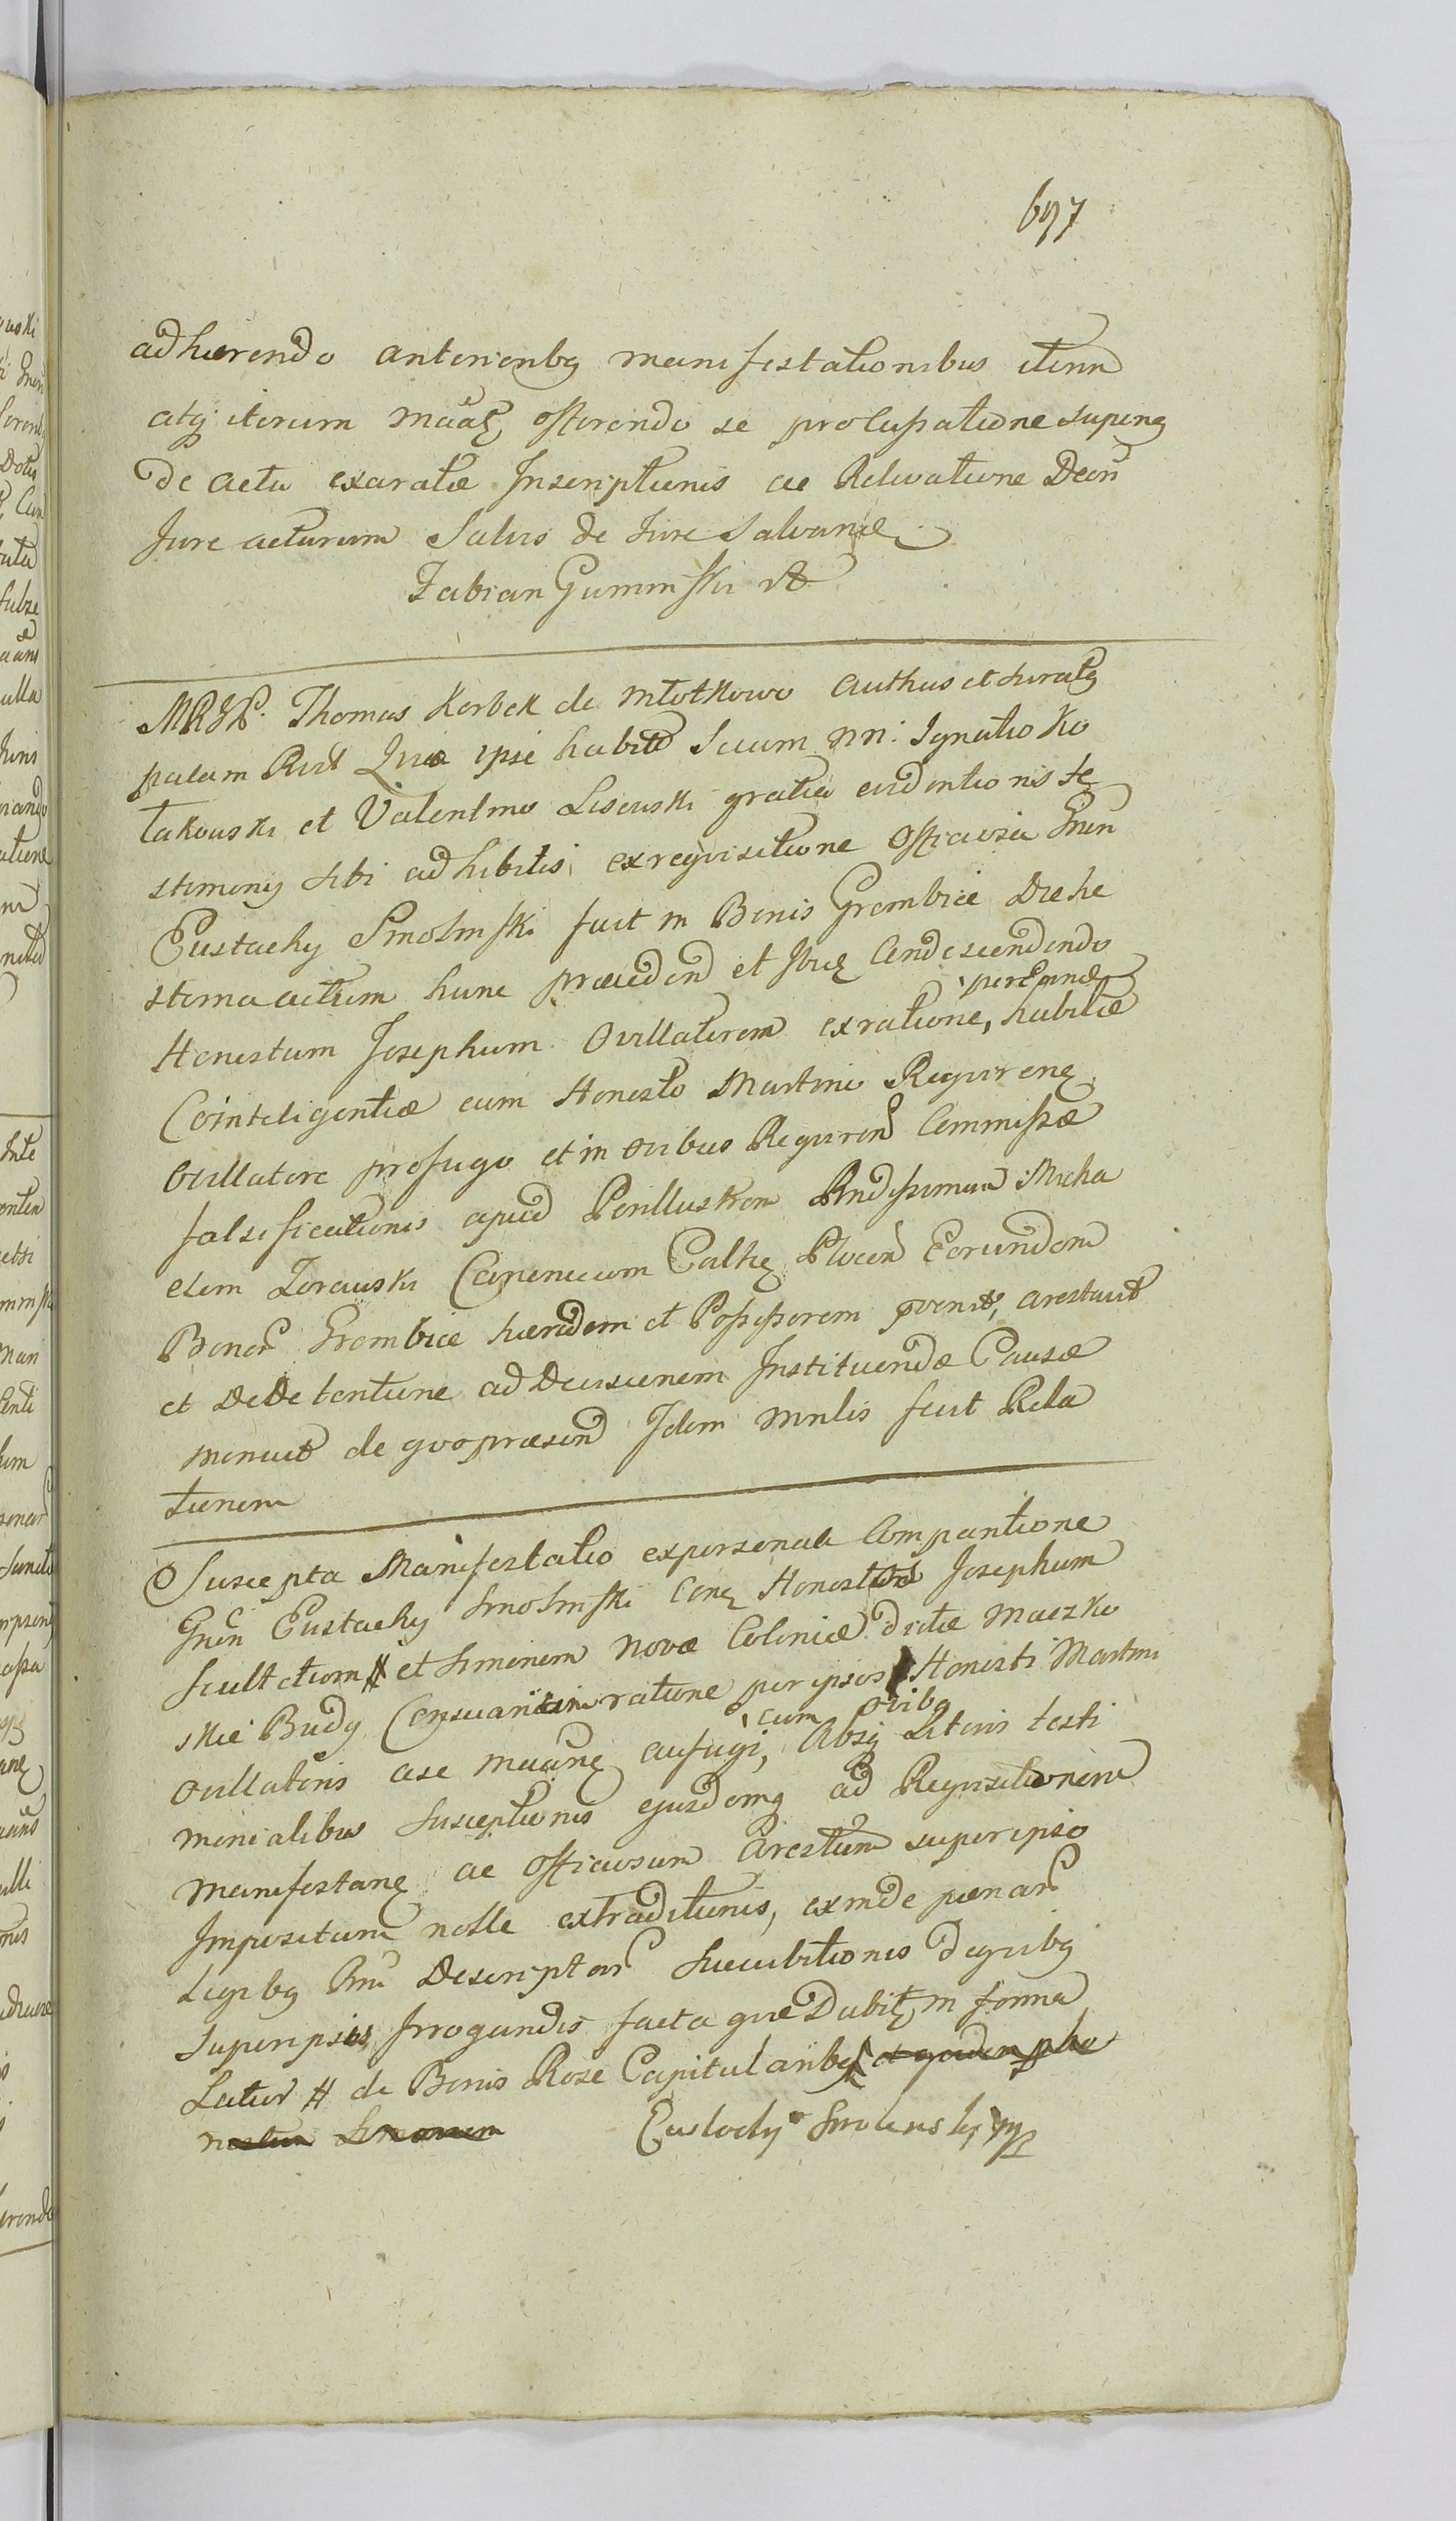 697
adhærendo anterioribg manifestationibus iterum
atq iterum offerendo se pro lusatione suping
de actu exaratæ Inscriptionis ac Relevatione Decn
Jure acturum Salvis de Jure Salvand
Fabian Guminski
MRGP. Thomas Korbek de Młotkowo Authus et Juratg
palam Rect Quia ipse habitis secum nn: Ignatio Ko
takouski et Valentino Lisouski gratia evidentionis te
stimonÿ sibi adhibitis ex reqvisitione Officiosa Gnen
Eustachÿ Smolinski fuit in Bonis Grombice Die he
sterna actum hunc præceden et Ibiq Condescendendo
Honestum Josephum Ovillatorem ex ratione, per Eund habitæ
Cointeligentiæ cum Honesto Martino Reqviren
Ovillatore profugo et in ovibus Reqviren Commissæ
falsificationis apud Perillustrem Rndissimum Micha
elem Zorauski Canonicum Cathe Plocen Eorundem
Bonor Grombice hæredem et Possessorem arestavit
et De Detentione ad Decisionem Instituendæ Causæ
monuit de qvo præsen Idem Mnlis fecit Rela
tionem
Suscepta Manifestatio ex personali Comparitione
Gnen Eustachÿ Smolinski Con Honestos Josephum
Scultetum # et Simonem Novæ Coloniæ dictæ Maczko
skie Budÿ Censuarios in ratione per ipsos Honesti Martini
Ovillatoris ase aufugi, cum ovibg Absq Literis testi
monialibus Susceptionis ejusdemq ad Reqvisitionem
Manifestan ac Officiosum Arestum super ipso
Impositum nolle extraditionis, exinde pænar
Legibg Rni Descriptar Sucubitionis Deqvibg
Super ipsos Irrogandis facta qvæ Dabit in forma
Latior # de Bonis Roze Capitularibg et
Simonem Smolinsky mp